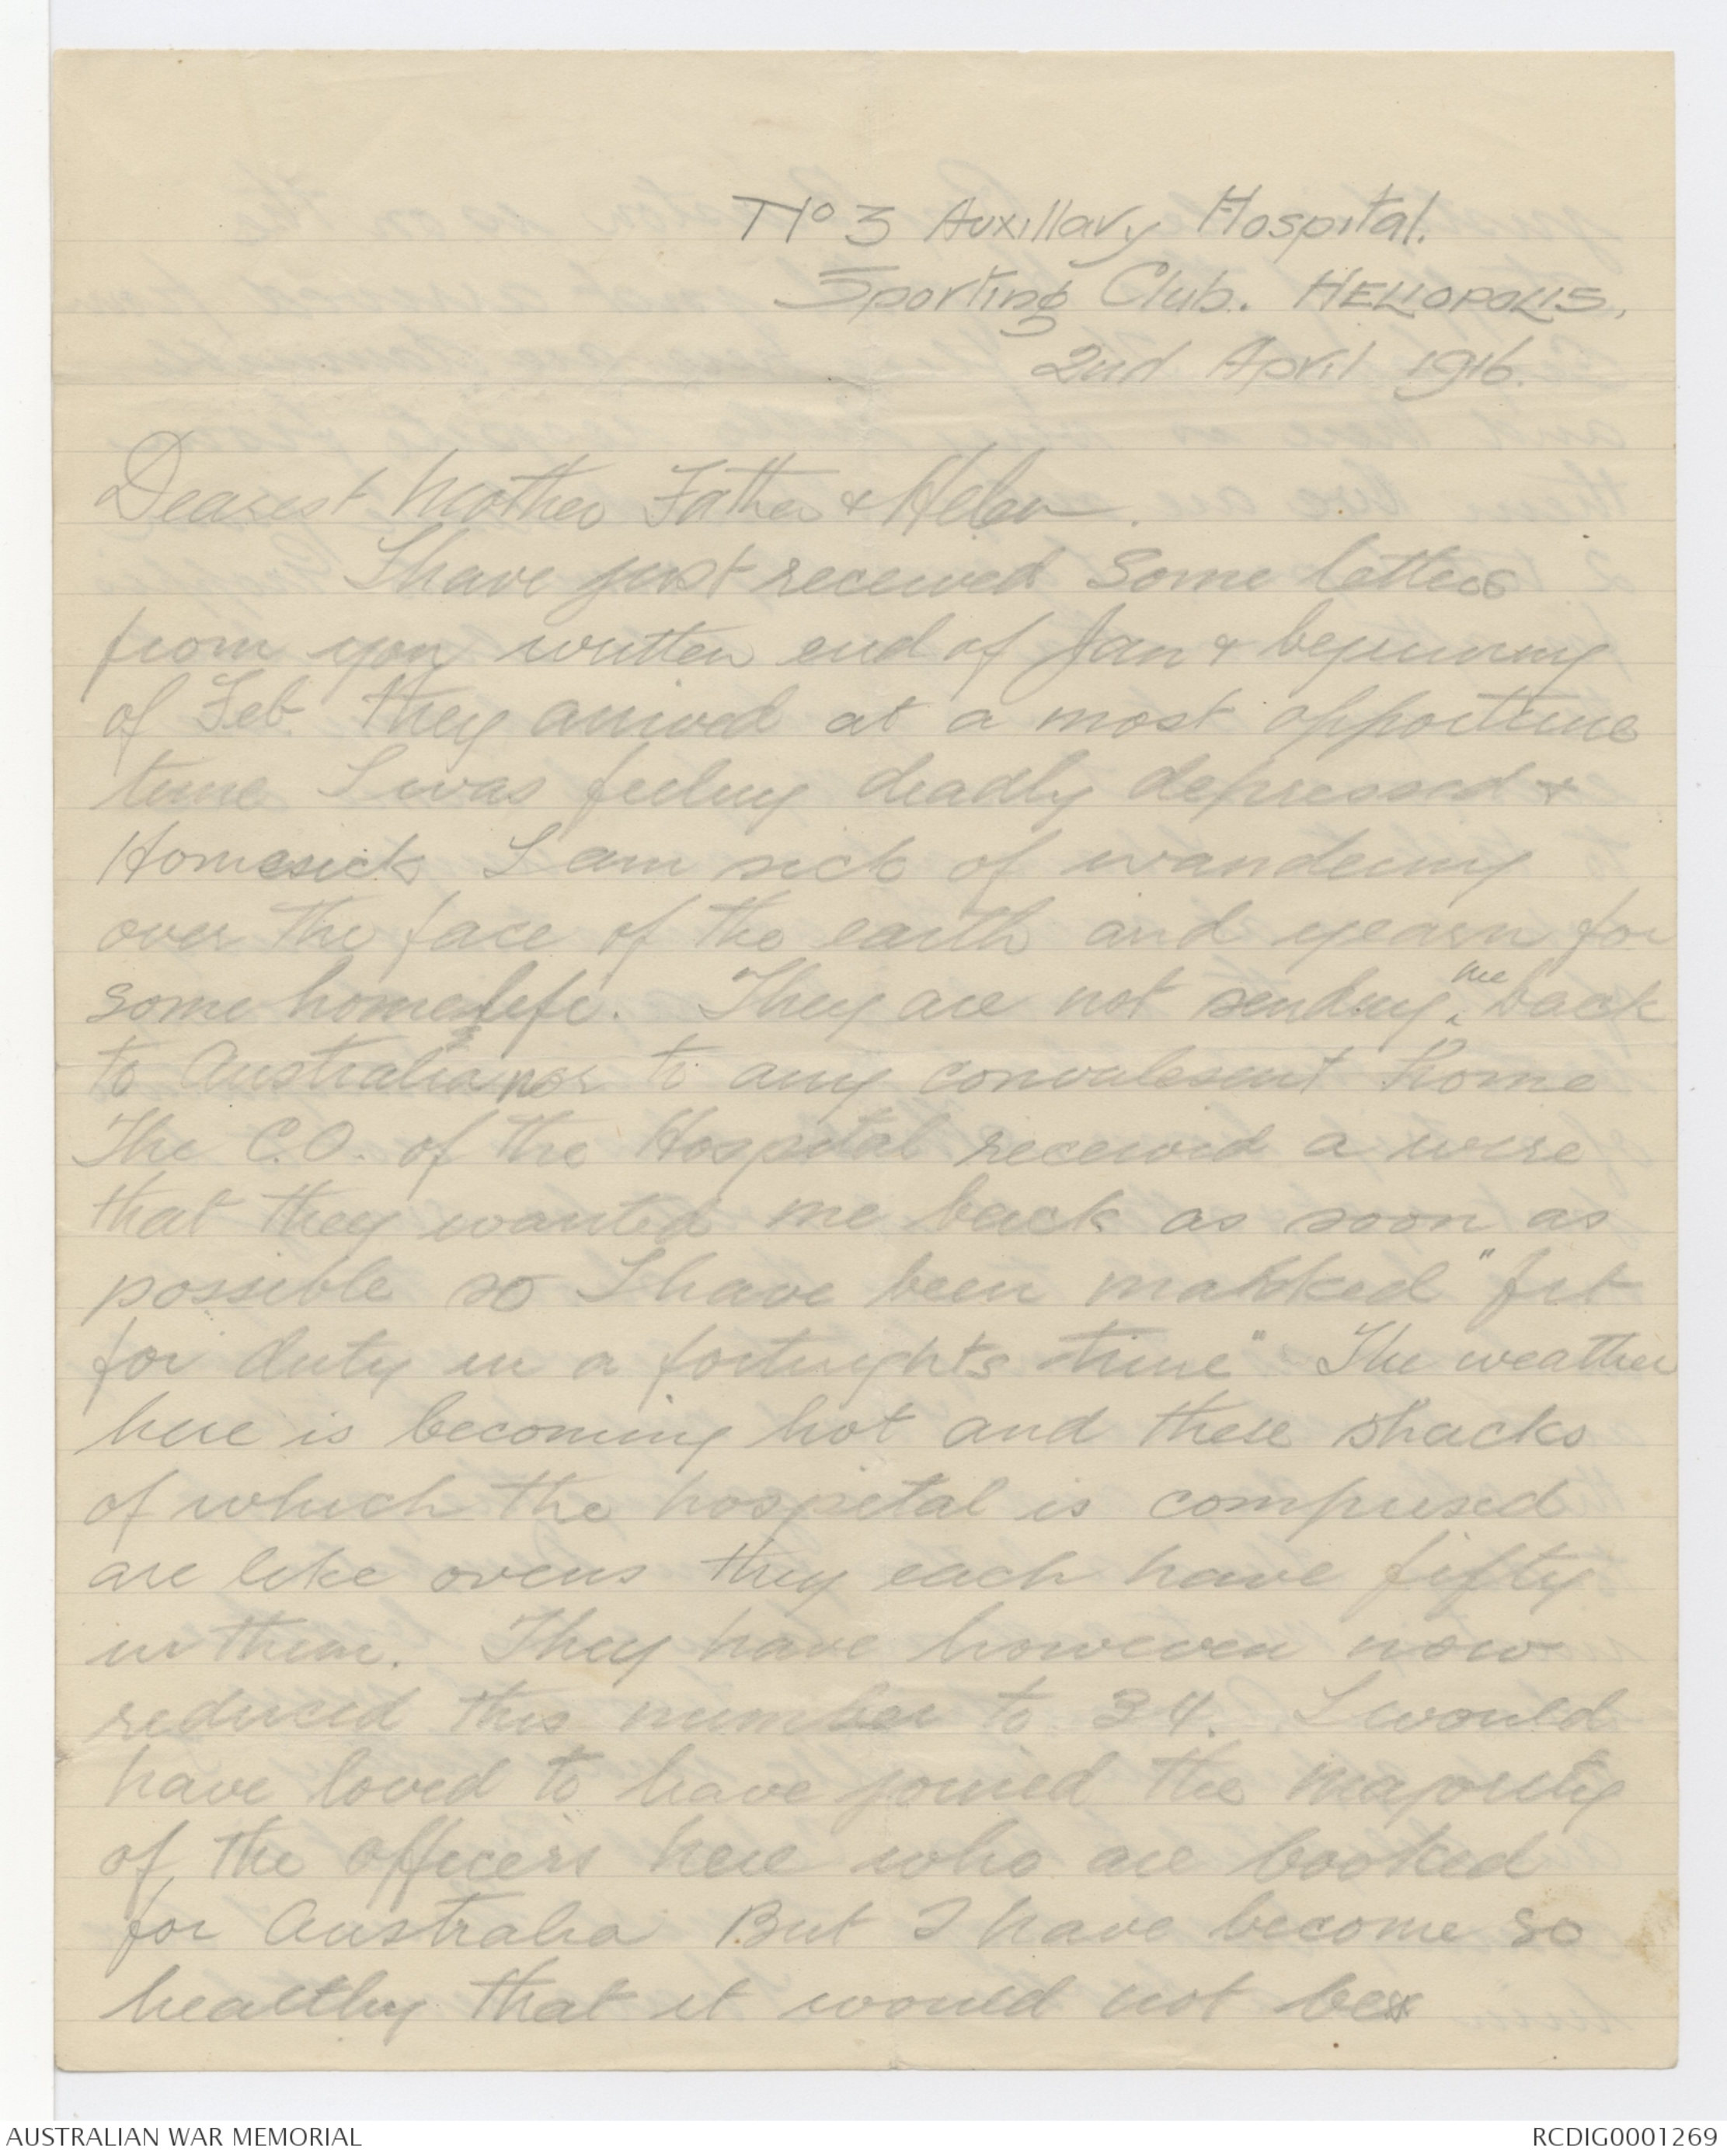 No 3 Auxillary Hospital.
Sporting Club. HELIOPOLIS,
2nd April 1916.
Dearest Mother Father & Helen.
I have just received some letters
from you written end of Jan & beginning
of Feb. they arrived at a most opportune
time I was feeling deadly depressed &
Homesick I am sick of wandering
over the face of the earth and yearn for
some home life. They are not sending me back
to Australia nor to any convalesent home
The C.O. of the Hospital received a wire
that they wanted me back as soon as
possible so I have been marked "fit
for duty in a fortnights time" The weather
here is becoming hot and these shacks
of which the hospital is comprised
are like ovens they each have fifty
in them. They have however now
reduced this number to 34. I would
have loved to have joined the majority
of the officers here who are booked
for Australia But I have become so
healthy that it would not be
AUSTRALIAN WAR MEMORIAL
RCDIG0001269